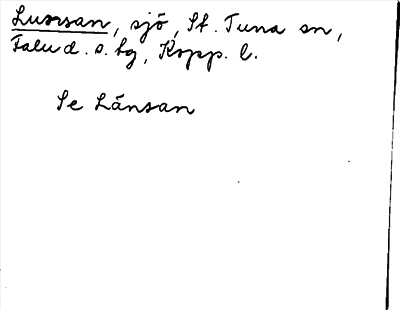 Lusrsan, sjö, St. Tuna sn,
Falu d. s. bg, Kopp. l.
Se Länsan